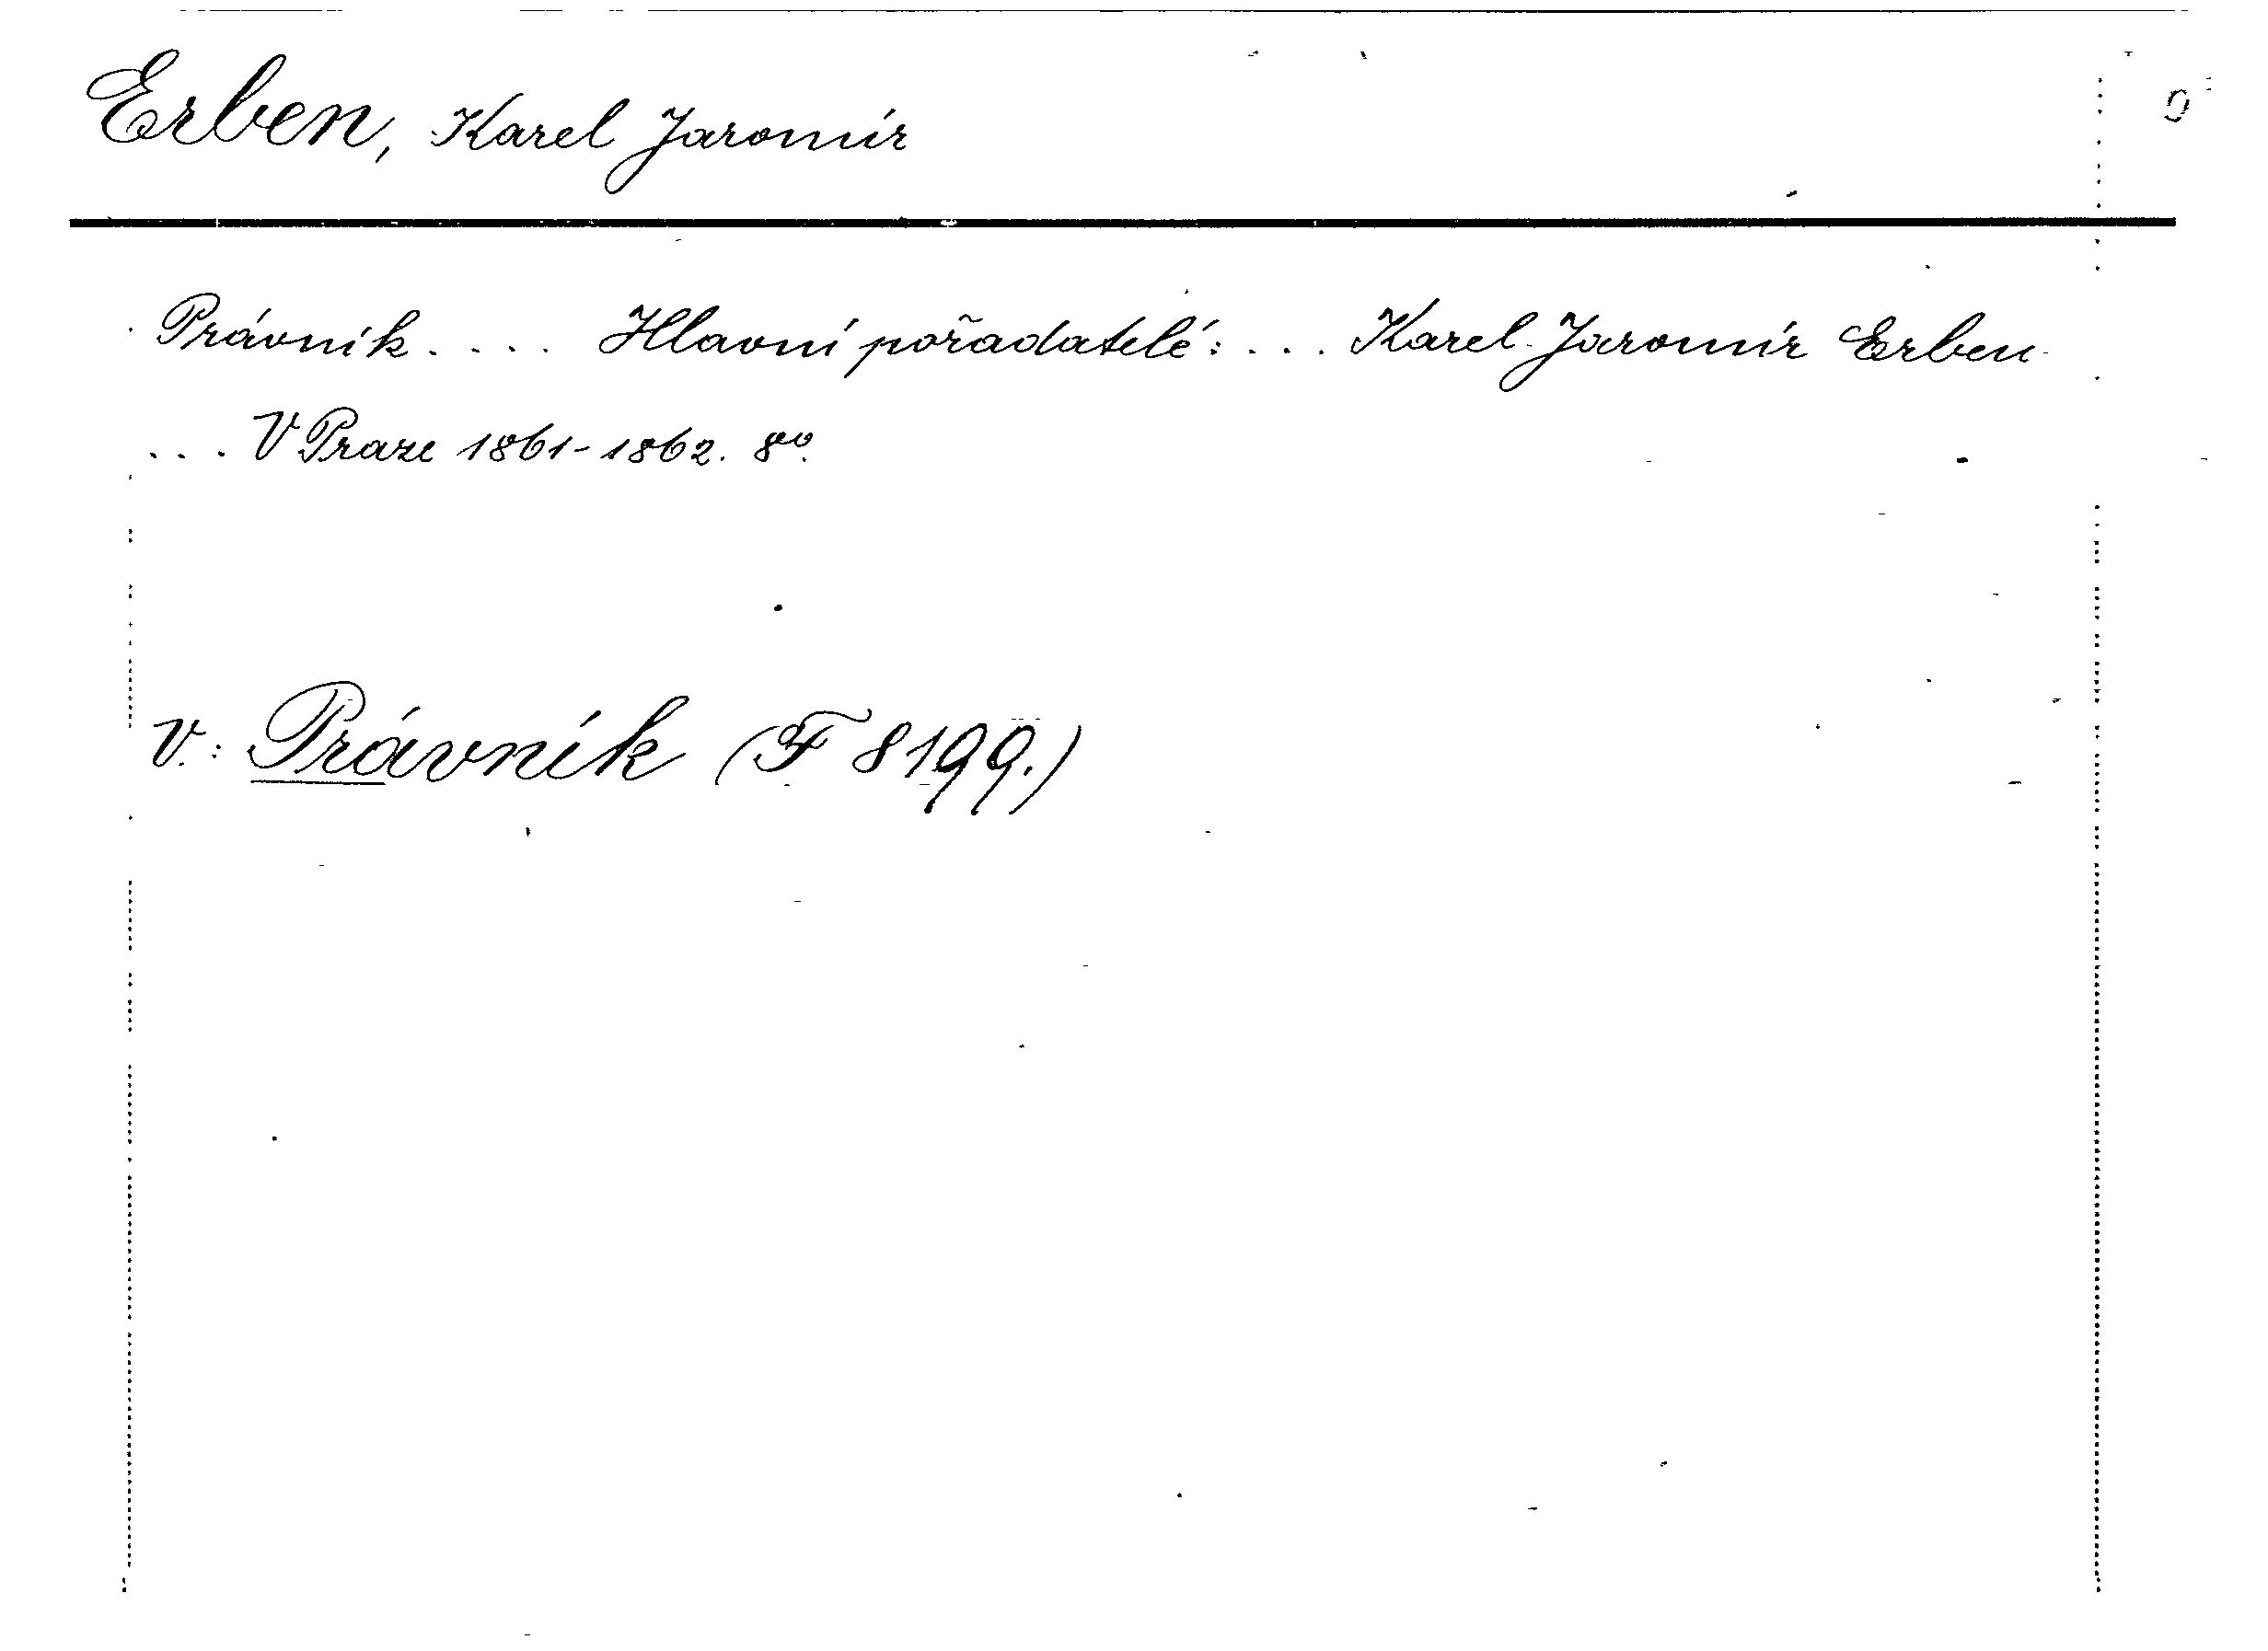 Erben, Karel Jaromír
Právník. ... Hlavní pořadatelé: ... Karel Jaromír Erben
... V Praze 1861-1862. 8º.
V.: Právník (F 8199.)